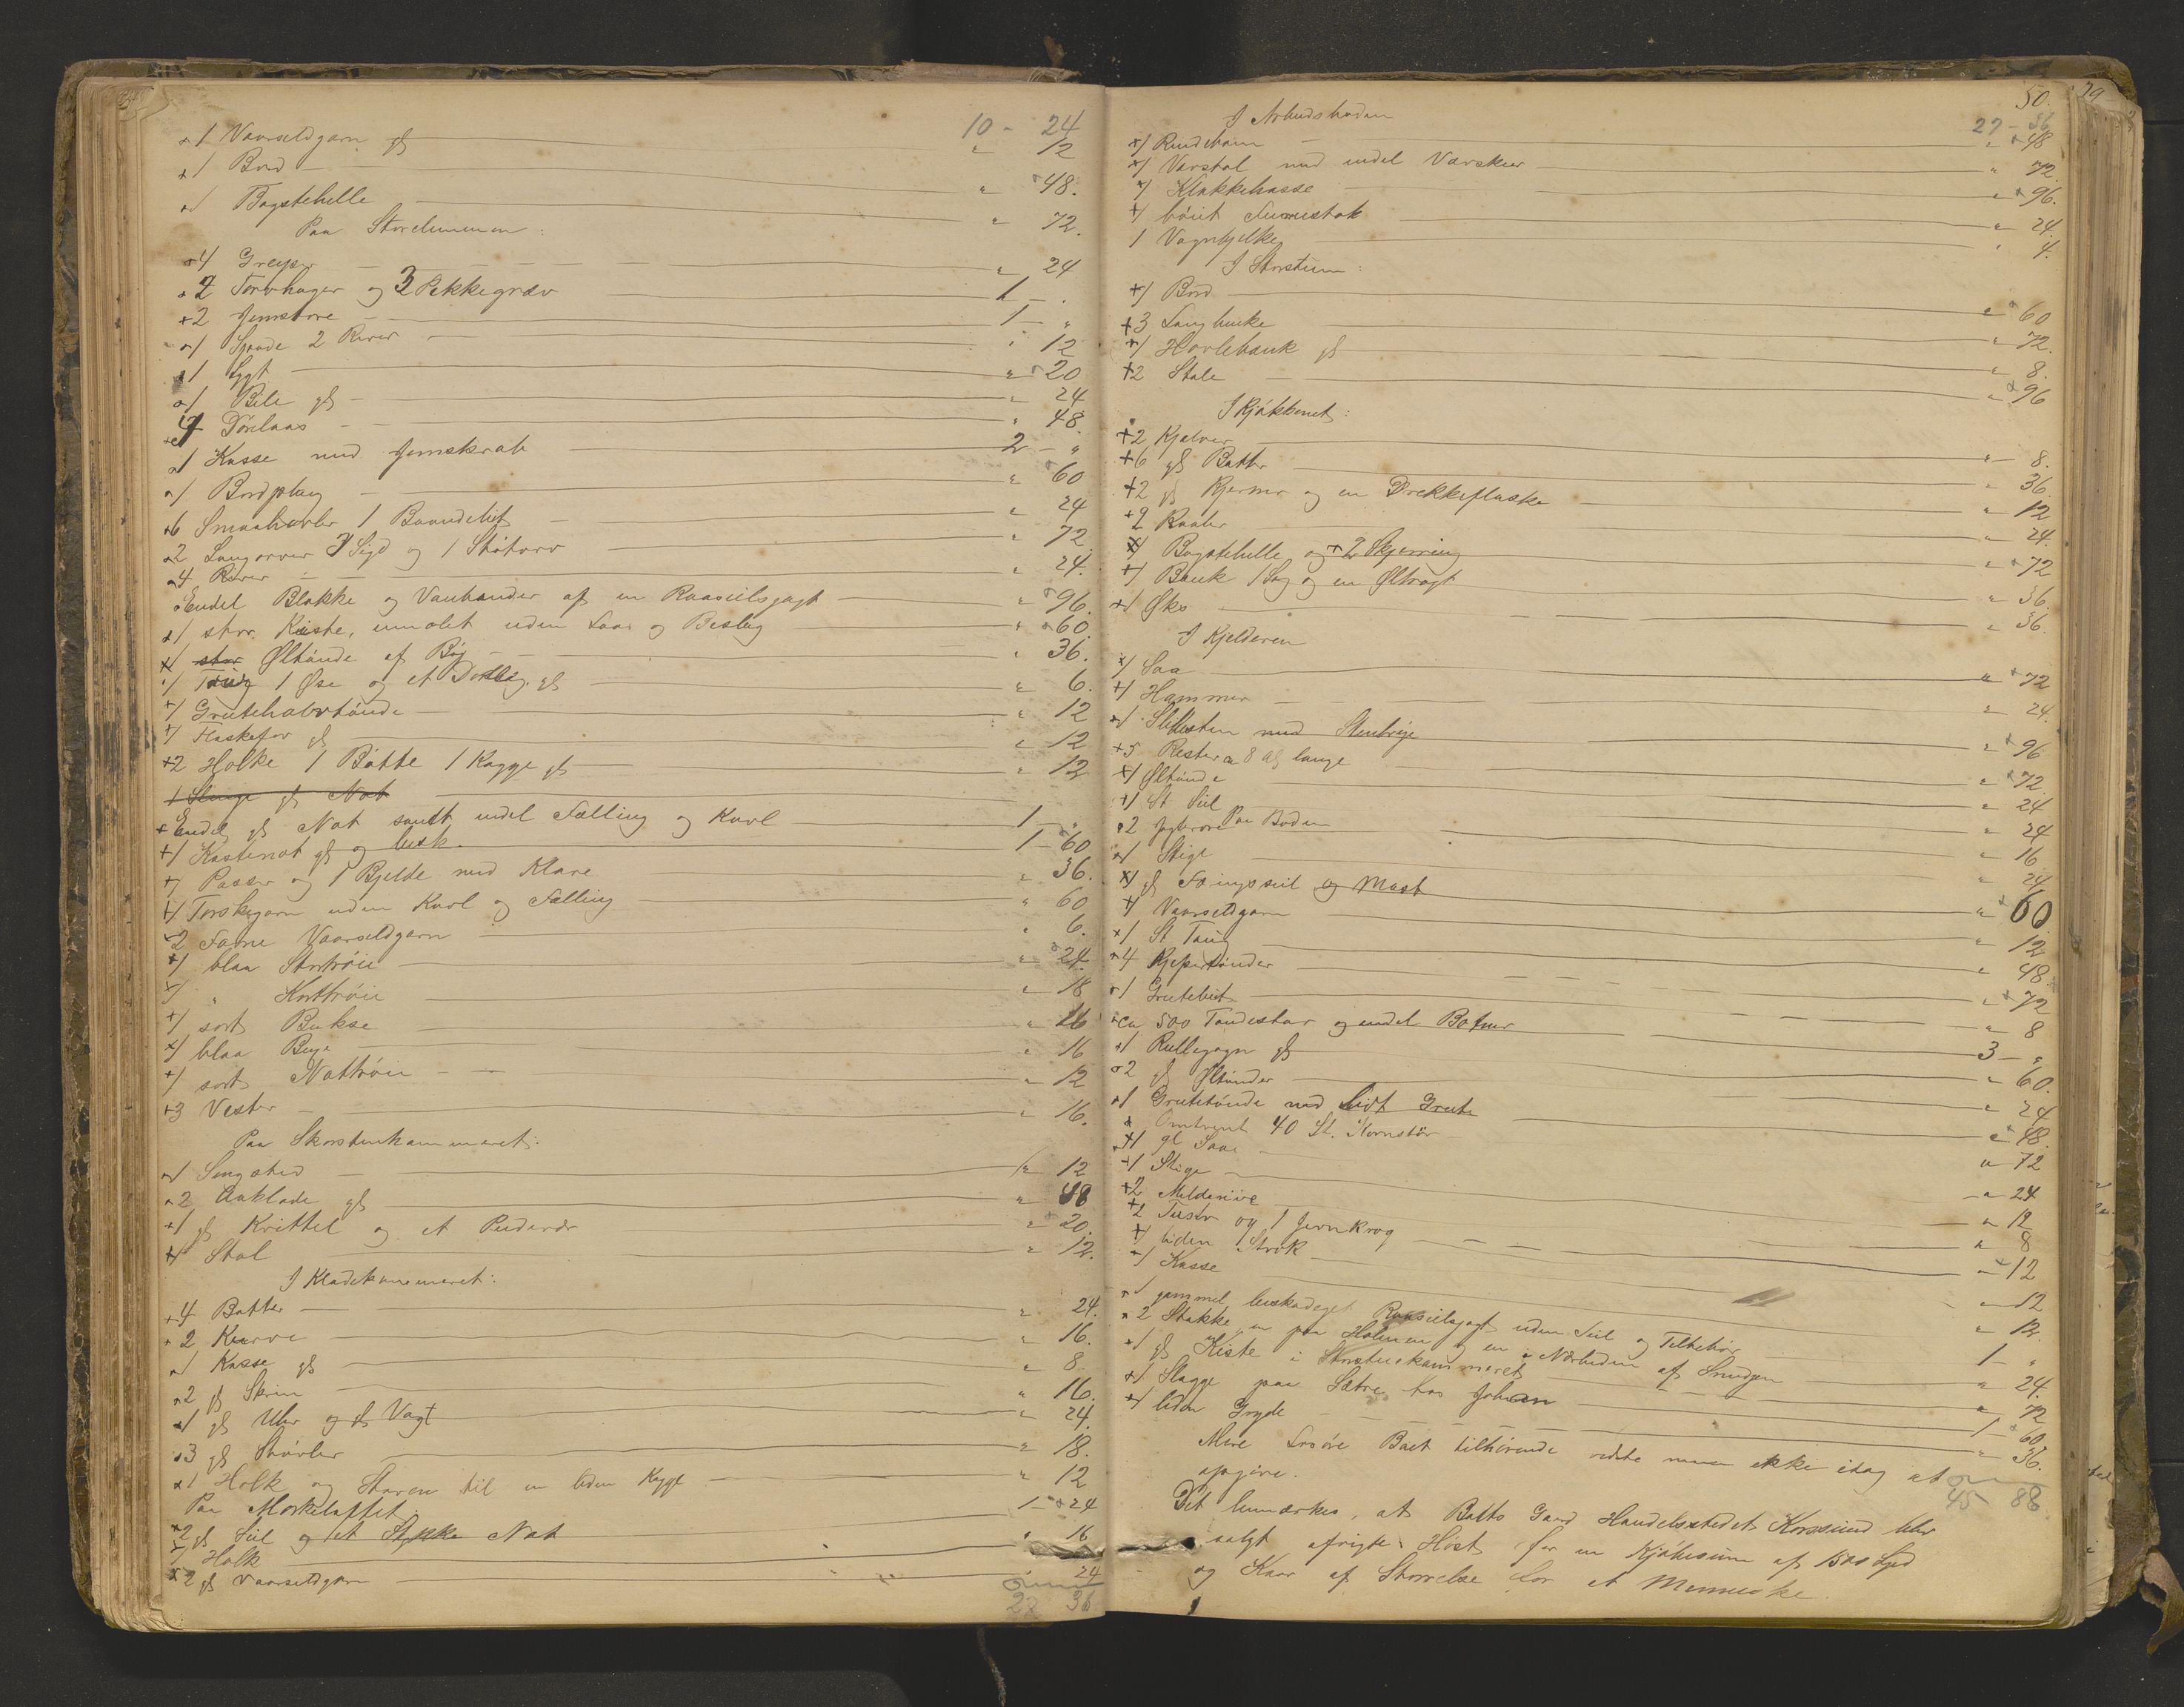 10 - 24
+1 Vaarsildgarn gl " 12
+1 Bord " 48.
+1 Bagstehelle " 72.
Paa Storelemmen:
+4 Greyper " 24
+2 Torvhager og 3 Pikkegræv 1 - "
+2 Jernstore 1 - "
+1 Spade 2 River " 12
+1 Lygt " 20
+1 Bile gl " 24
+4 Dørelaas " 48.
+1 Kasse med Jernskrab 2 - "
+1 Bordplag " 60
+6 Smaahøvler 1 Baandeliet " 24
+2 Langorver 3 Sigd og 1 Støtorv " 72.
+4 River " 24.
+Endel Blokke og Vanhunder af en Raaseilsjagt " 96.
+1 stor Kiste, umalet uden Laas og Beslag " 60.
+1 Øltønde af Bøg " 36.
+1 Taug 1 Øse og et Dørslag. gl " 6.
+1 Grutehalvtønde " 12
+1 Flaskefor gl " 12
+2 Holke 1 Bøtte 1 Kagge gl " 12
1 Slunge gl Not
+Endel gl Not samt endel Fælling og Kavl 1 - "
+1 Kastenot gl og besk. 1 - 60
+1 Passer og 1 Bjelde med Klave " 36.
+1 Torskegarn uden Kavl og Fælling " 60
+2 Favne Vaarsildgarn " 6.
+1 blaa Stortrøie " 24.
+1 " Korttrøie " 18
+1 sort Bukse " 26
+1 blaa Buxe " 16
+1 sort Nattrøie " 12
+3 Vester " 16.
Paa Skorstenkammeret:
+1 Sengsted " 12
+2 Anklade gl " 48
+1 gl Krittel og et Pudevær " 20.
+1 Stol " 12.
I Kladekammeret:
+4 Bøtter " 24.
+2 Kurve " 16.
+1 Kasse gl " 8.
+2 gl Skrin " 16.
+1 gl Uhr og gl Vægt " 24.
+3 gl Støvler " 18.
+1 Holk og Staven til en liden Kagge " 12
Paa Mørkeloftet 1 - 24
+2 gl Seil og et Stykke Not " 16
+1 Holk " 24
+2 gl Vaarsildgarn
28 36
50.
I Arbeidsboden 27 - 36
+1 Rendebom " 48
+1 Vævstol med endel Vævskeer " 72.
+1 Klokkekasse " 96.
+1 bøiet Tumestok " 24.
1 Vognhjelke " 4.
I Storstuen:
+1 Bord " 60
+3 Langbenke " 72.
+1 Høvlebænk gl " 8.
+2 Stole " 96
I Kjøkkenet:
+2 Kjelver " 8.
+6 gl Bøtter " 36
+2 gl Kjerner og en Drekkeflaske " 12
+2 Raaler " 24.
+1 Bagstehelle og +2 Skjerring " 72
+1 Bænk 1 Sag og en Øltragt " 36.
+1 Øks " 36.
I Kjelderen
+1 Saa " 72
+1 Hammer " 24.
+1 Slibesten med Stenbrye " 96
+5 Rester a 8 al lange " 72.
+1 Øltønde " 24
+1 St Seil " 24
+2 Jagtrore Paa Boden " 16
+1 Stige " 24
+1 gl Færingsseil og Mast " 60
+1 Vaarsildgarn " 12
+1 St Taug " 48.
+4 Kjepurtønder " 72
+1 Grutebiet " 8
+ca 500 Tøndestav og endel Botner 3 - "
+1 Rullegogn gl " 60.
+2 gl Øltønder " 24
+1 Grutetønde med lidt Grute " 48.
+ Omtrent 40 St. Kornstør " 72
+1 gl Saae " 24
+1 Stige " 12
+2 Melderiive " 8
+2 Tuster og 1 Jernkrog " 12
+1 liden Strok " 12
+1 Kasse " 12.
+1 gammel beskadeget Raaseilsjagt uden Seil og Tilbehør 1 - "
+2 Stakke en paa Holmen og en i Nærheden af Smidjen " 24.
+1 gl Kiste i Storstuekammeret " 72
+1 Slagge paa Sætre hos Johan 1 - 60
+1 liden Gryde " 36.
Mere Løsøre Boet tilhørende vidste man ikke idag at
opgive. 45 88
Det bemærkes, at Boets Gaard Handelsstedet Korssund blev
solgt afvigte Høst for en Kjøbesum af 1500 Spd
og Kaar af Størrelse for et Menneske.